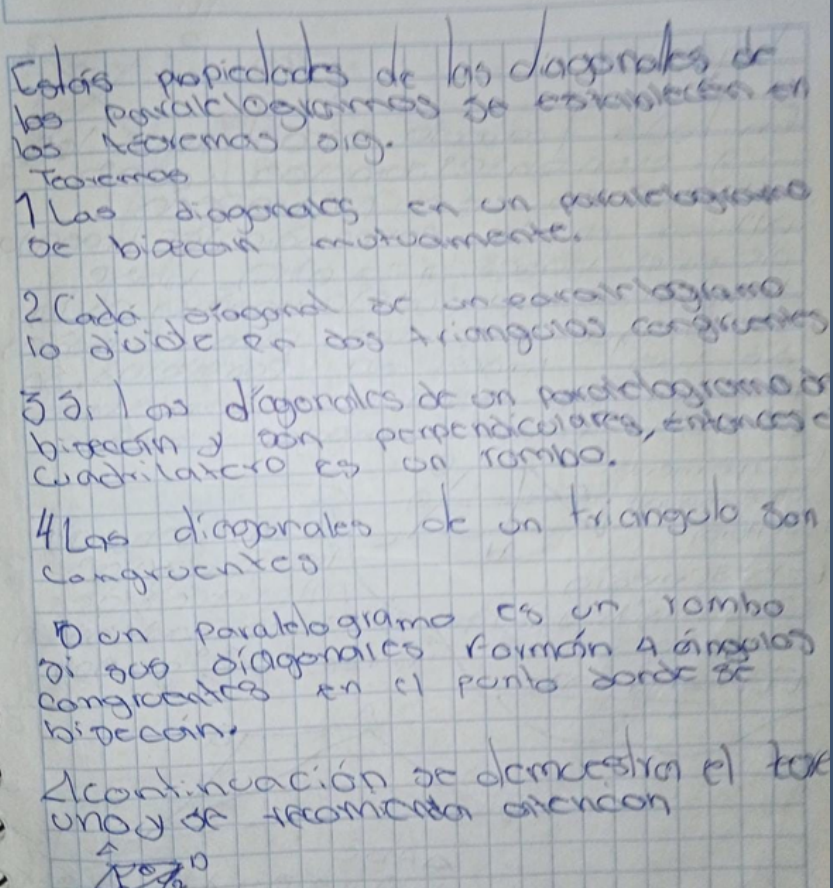 Estas propiedades de las diagonales de
los paralelogramos se establecen en
los teoremas sig.
Teoremas
1 Las diagonales en un paralelogramo
se bisecan mutuamente.
2 Cada diagonal de un paralelogramo
lo divide en dos triangulos congruentes
3 Si las diagonales de un paralelogramo
bisecan y son perpendiculares, entonces
cuadrilatero es un rombo.
4 Las diagonales de un triangulo son
congruentes
5 un paralelogramo es un rombo
si sus diagonales forman 4 ángulos
congruentes en el punto donde se
bisecan.
Acontinuación se demuestra el
uno y se recomienda atencion
A
D